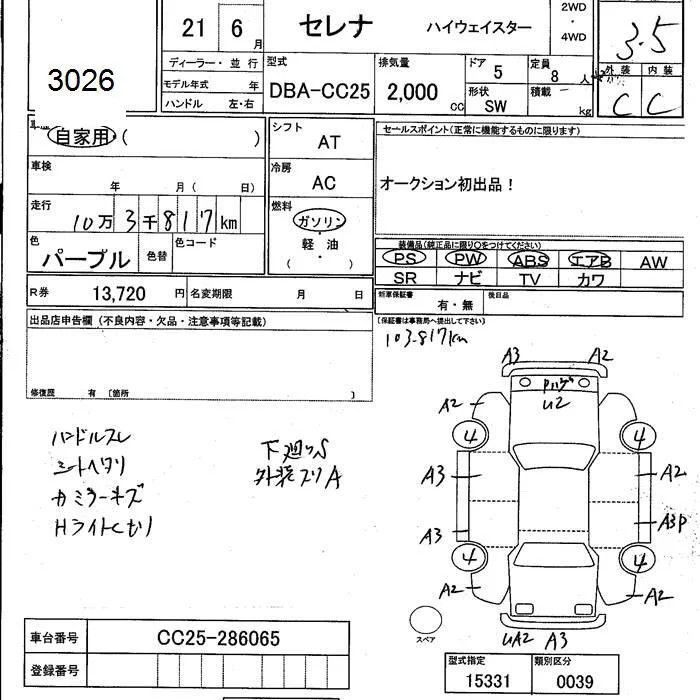 2WD
21 6 月 セレナ ハイウェイスター ・ 3.5
4WD
ディーラー・並行 型式 排気量 ドア 5 定員 8 人
外装 内装
3026 モデル年式 年 DBA-CC25 2,000 cc 形状 SW 積載 kg C C
ハンドル 左・右
自家用 ( )
シフト AT
セールスポイント(正常に機能するものに限ります)
車検 年 月( 日)
冷房 AC
オークション初出品!
走行 10万3千817km
燃料 ガソリン・軽油 ( )
色 パープル 色替 色コード
装備品(純正品に限り○をつけてください)
PS PW ABS エアB AW
SR ナビ TV カワ
R券 13,720 円 名変期限 月 日
新車保証書 有・無 後日品
(保証書は事務局へ提出して下さい)
出品店申告欄(不良内容・欠品・注意事項等記載)
103.817km
修復歴 有 〔箇所
A3 A2
U2
A2 A2
4 4
ハンドルスレ
シートヘタリ
カミラーキズ
Hライトくもり
下廻りS
外装スリA
A3 A2
A3 A3P
4 4
A2 A2
スペア
UA2 A3
車台番号 CC25-286065
登録番号
型式指定 類別区分
15331 0039